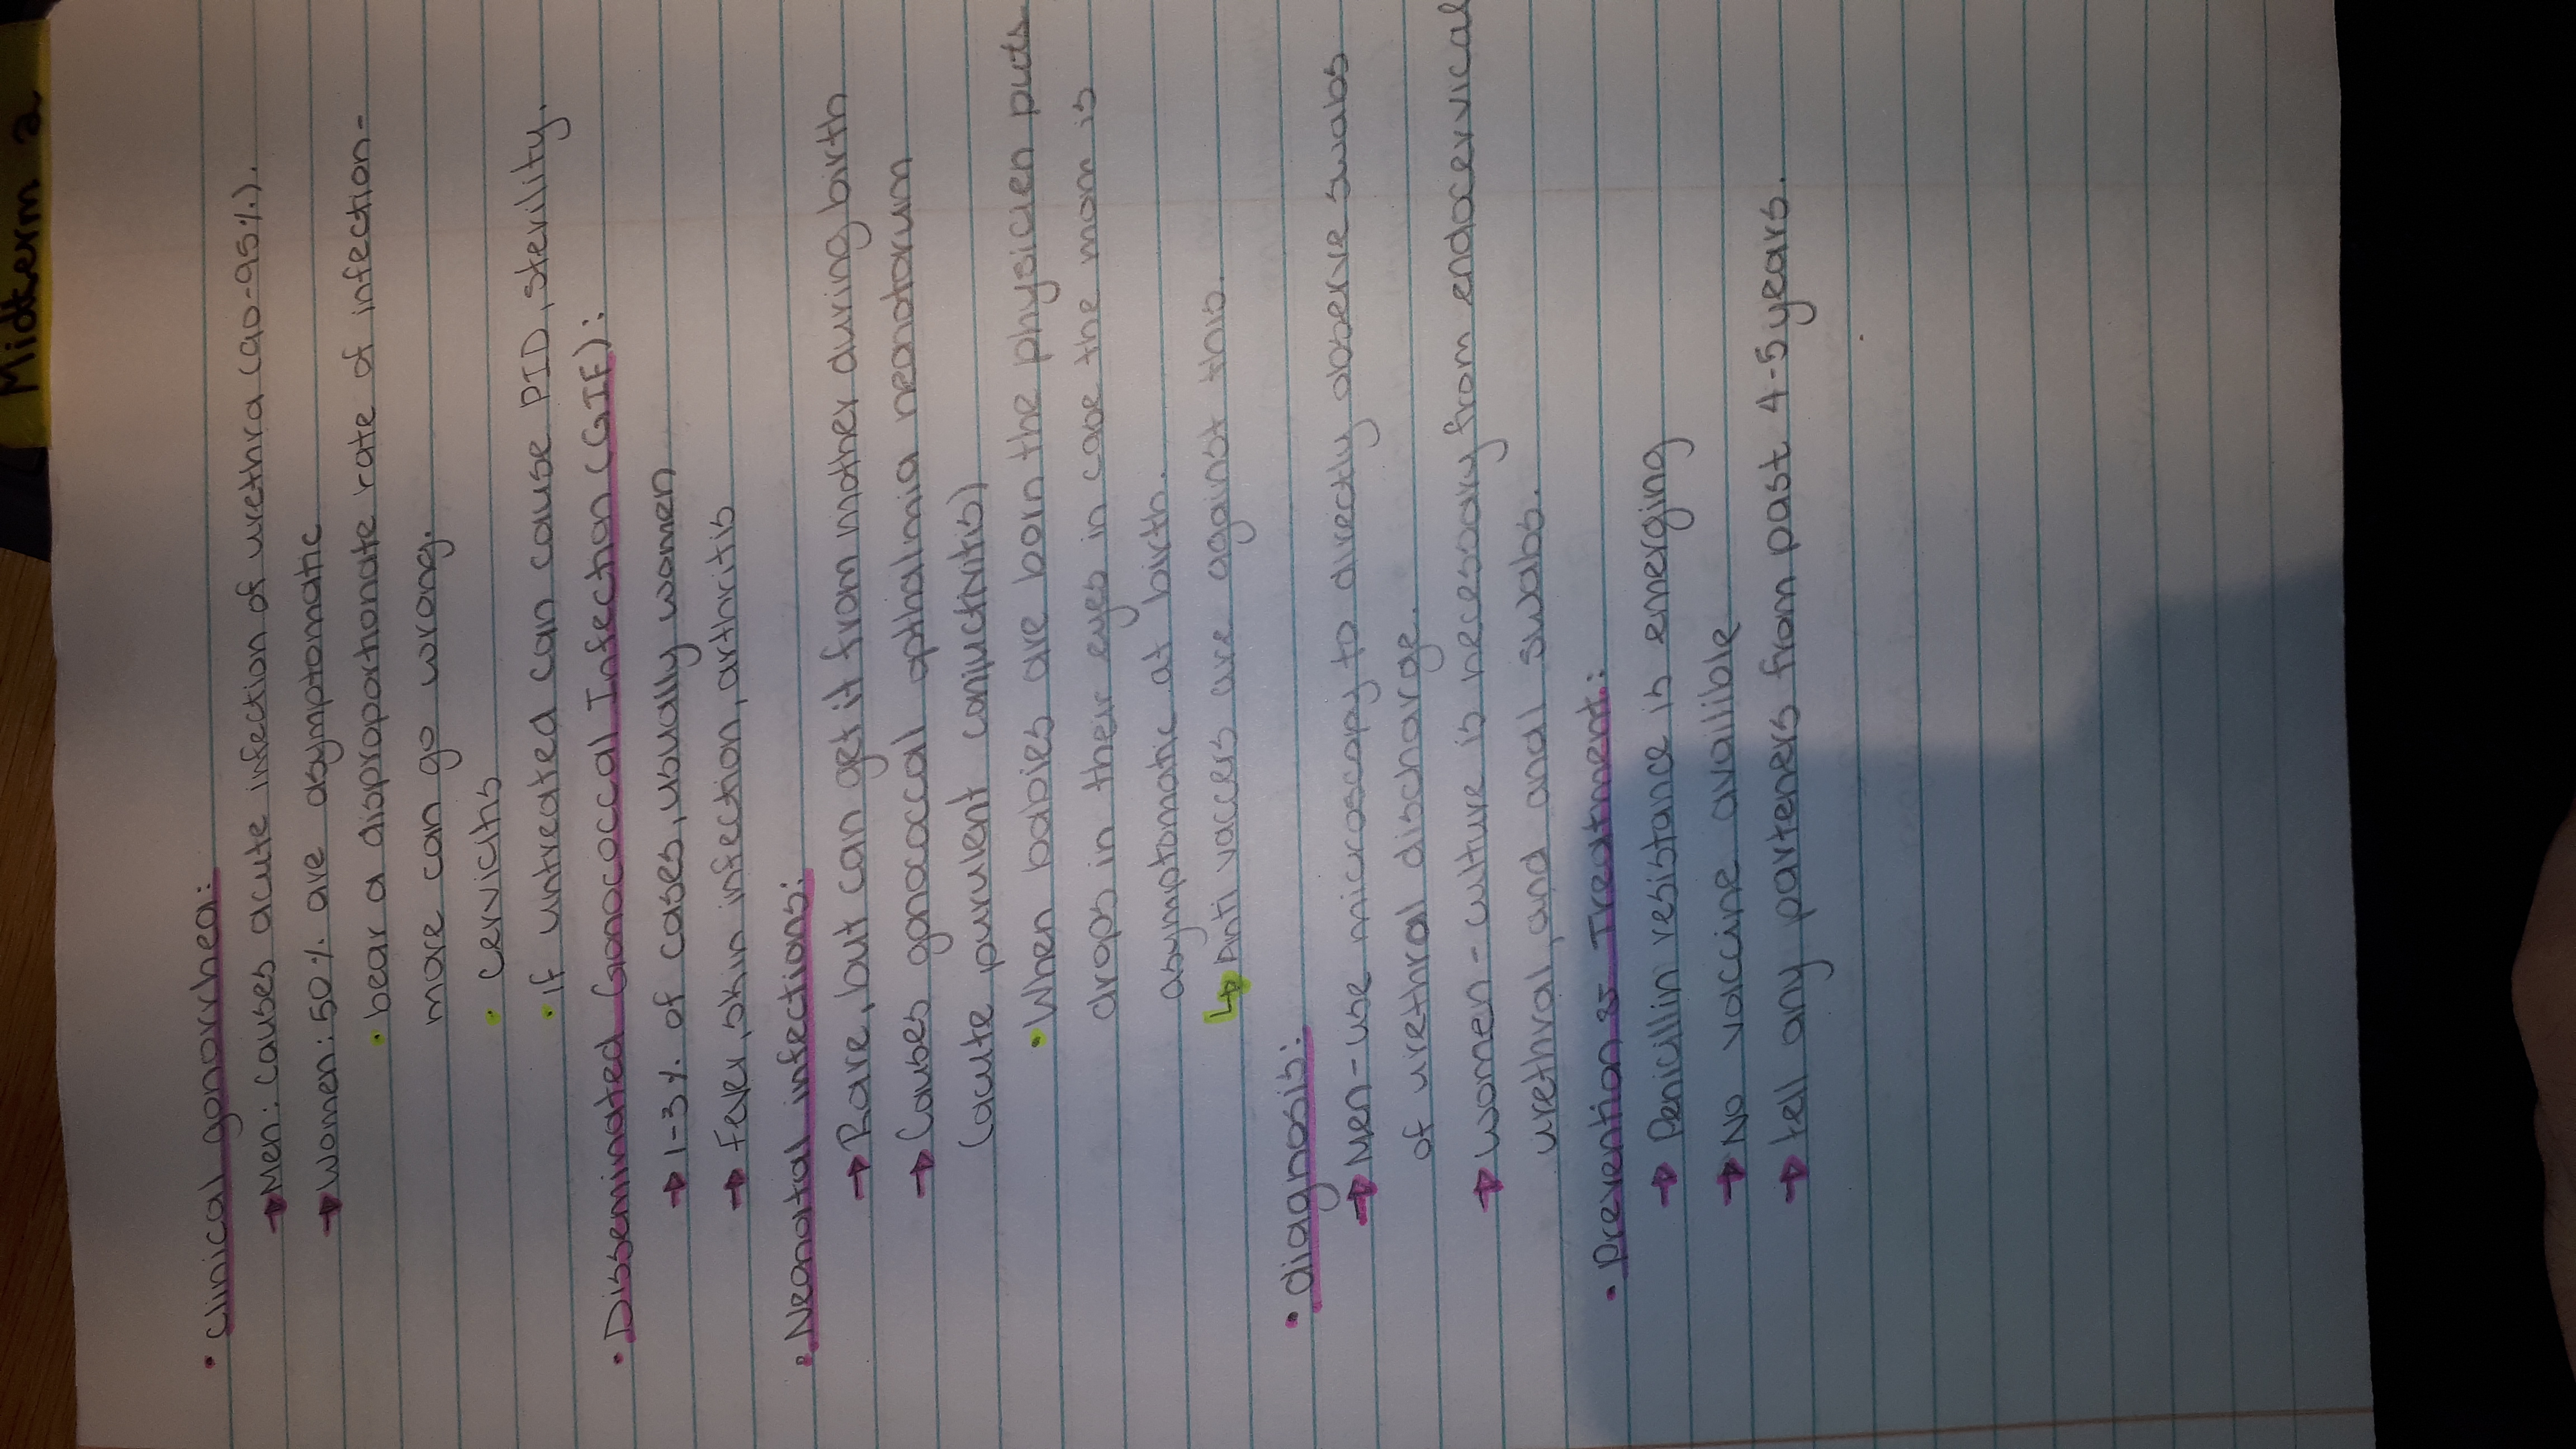 Midterm 2
• clinical gonorrhea:
→ Men: causes acute infection of urethra (90-95%).
→ Women: 50% are asymptomatic
• bear a disproportionate rate of infection-
more can go wrong.
• cervicits
• if untreated can cause PID, sterility.
• Disseminated Gonococcal Infection (GIF):
→ 1-3% of cases, usually women
→ Fever, skin infection, arthritis
• Neonatal infections:
→ Rare, but can get it from mother during birth
→ Causes gonococcal opthalmia neonotorum
(acute purulent conjuctivitis)
• When babies are born the physicien puts
drops in their eyes in case the mom is
asymptomatic at birth.
↳ Anti vaccers are against this.
• diagnosis:
→ Men - use microscopy to directly observe swabs
of urethral discharge.
→ women - culture is necessary from endocervical
urethral, and anal swabs.
• prevention & Treatment:
→ Penicillin resistance is emerging
→ No vaccine availible
→ tell any parteners from past 4-5 years.